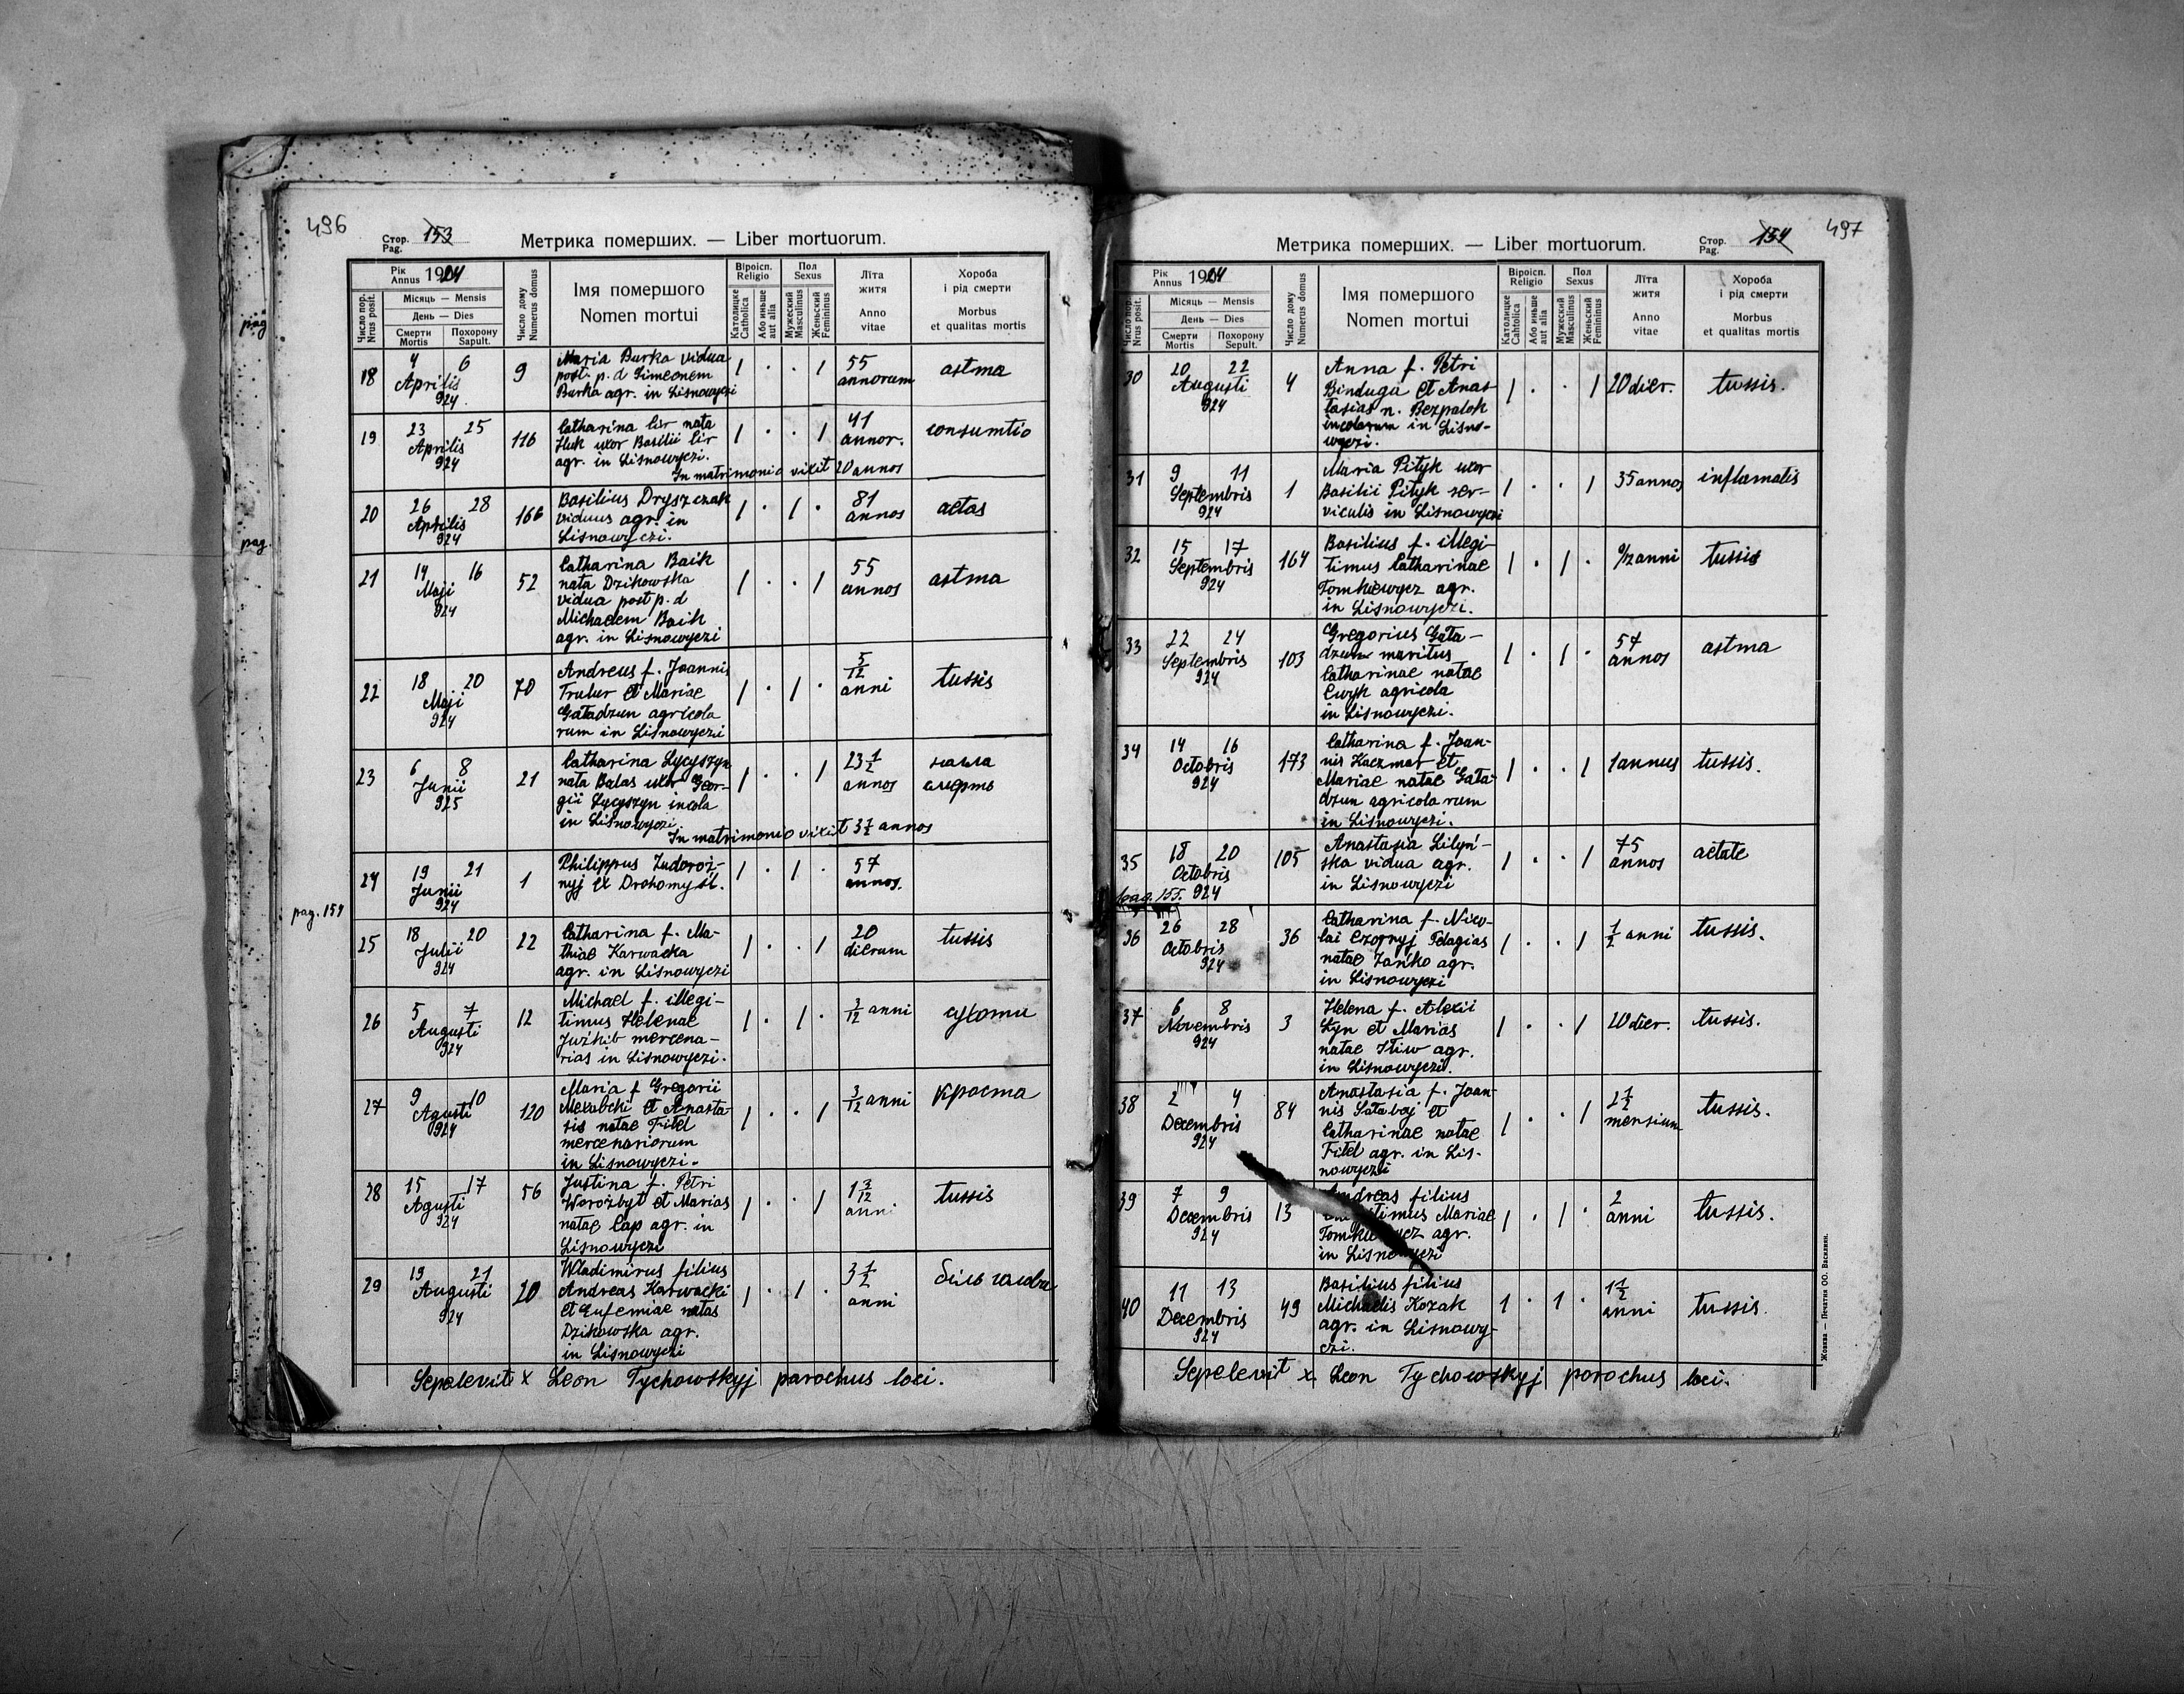 496
Стор. Pag. 153
Метрика померших. — Liber mortuorum.
Число пор. Nrus posit.
Рік Annus 1924
Місяць — Mensis
День — Dies
Смерти Mortis
Похорону Sapult.
Число дому Numerus domus
Імя помершого
Nomen mortui
Віроісп. Religio
Католицке Catholica
Або иньше aut alia
Пол Sexus
Мужеский Masculinus
Женьский Femininus
Літа житя
Anno vitae
Хороба і рід смерти
Morbus et qualitas mortis
18 4 6 Aprilis 924 9
Maria Burka vidua
post. p. d Simeonem
Burka agr. in Lisnowyczi
1 . . 1 55 annorum astma
19 23 25 Aprilis 924 116
Catharina Cir nata
Huk uxor Basilii Cir
agr. in Lisnowyczi.
In matrimonio vixit 20 annos
1 . . 1 41 annor. consumtio
20 26 28 Aprilis 924 166
Basilius Dryszczak
viduus agr. in
Lisnowyczi.
1 . 1 . 81 annos aetas
21 14 16 Maji 924 52
Catharina Baik
nata Dzikowska
vidua post p. d
Michaelem Baik
agr. in Lisnowyczi
1 . . 1 55 annos astma
pag.
pag.
22 18 20 Maji 924 70
Andreus f. Joannis
et Mariae
Gatadzun agricola
rum in Lisnowyczi
1 . 1 . 5/12 anni tussis
23 6 8 Junii 925 21
Catharina Lycyszyn
nata Balas uxor Geor-
gii Lycyszyn incola
in Lisnowyczi.
In matrimonio vixit 3½ annos
1 . . 1 23 ½ annos нагла смерть
24 19 21 Junii 924 1
Philippus Zudoroż-
nyj ex Drohomyśl.
1 . 1 . 57 annos.
pag. 154
25 18 20 Julii 924 22
Catharina f. Ma-
thiae Karwacka
agr. in Lisnowyczi
1 . . 1 20 dierum tussis
26 5 7 Augusti 924 12
Michael f. illegi-
timus Helenae
mercena-
rias in Lisnowyczi.
1 . 1 . 3/12 anni сухоти
27 9 10 Agusti 924 120
Maria f Gregorii
et Anasta-
sis natae Fitel
mercenariorum
in Lisnowyczi.
1 . . 1 3/12 anni кроста
28 15 17 Agusti 924 56
Justina f. Petri
Worożbyt et Marias
natae Cap agr. in
Lisnowyczi
1 . . 1 1 3/12 anni tussis
29 19 21 Augusti 924 20
Wladimirus filius
Andreas Karwacki
et Eufemiae natas
Dzikowska agr.
in Lisnowyczi
1 . 1 . 3 ½ anni біль голови
Sepelevit x Leon Tychowskyj parochus loci.
497
Стор. Pag. 154
Метрика померших. — Liber mortuorum.
Число пор. Nrus posit.
Рік Annus 1924
Місяць — Mensis
День — Dies
Смерти Mortis
Похорону Sepult.
Число дому Numerus domus
Імя помершого
Nomen mortui
Віроісп. Religio
Католицке Cahtolica
Або иньше aut alia
Пол Sexus
Мужеский Masculinus
Женьский Femininus
Літа житя
Anno vitae
Хороба і рід смерти
Morbus et qualitas mortis
30 20 22 Augusti 924 4
Anna f. Petri
Binduga et Anas-
tasias n. Bezpalok
incolarum in Lisno-
wyczi.
1 . . 1 20 dier. tussis.
31 9 11 Septembris 924 1
Maria Pityk uxor
Basilii Pityk ser-
viculis in Lisnowyczi
1 . . 1 35 annos inflamatis
32 15 17 Septembris 924 164
Basilius f. illegi-
timus Catharinae
Tomkiewycz agr.
in Lisnowyczi.
1 . 1 . 9/12 anni tussis
33 22 24 Septembris 924 103
Gregorius Gata-
dzun maritus
Catharinae natae
Cwyk agricola
in Lisnowyczi.
1 . 1 . 57 annos astma
34 14 16 Octobris 924 173
Catharina f. Joan-
nis Kaczmar et
Mariae natae Gata-
dzun agricola rum
in Lisnowyczi.
1 . . 1 1 annus tussis.
35 18 20 Octobris 924 105
Anastasia Lilyń-
ska vidua agr.
in Lisnowyczi
1 . . 1 75 annos aetate
pag. 155.
36 26 28 Octobris 924 36
Catharina f. Nico-
lai Czornyj Pelagias
natae Zańko agr.
in Lisnowyczi
1 . . 1 ½ anni tussis.
37 6 8 Novembris 924 3
Helena f. Alexii
Lyn et Marias
natae Iliw agr.
in Lisnowyczi.
1 . . 1 20 dier. tussis.
38 2 4 Decembris 924 84
Anastasia f. Joan-
nis et
Catharinae natae
Fitel agr. in Lis-
nowyczi
1 . . 1 2 ½ mensium tussis.
39 7 9 Decembris 924 13
Andreas filius
illegitimus Mariae
Tomkiewycz agr.
in Lisnowyczi
1 . 1 . 2 anni tussis.
40 11 13 Decembris 924 49
Basilius filius
Michaelis Kozak
agr. in Lisnowy-
czi.
1 . 1 . 1 ½ anni tussis.
Sepelevit x Leon Tychowskyj parochus loci.
Жовква — Печатня ОО. Василіян.